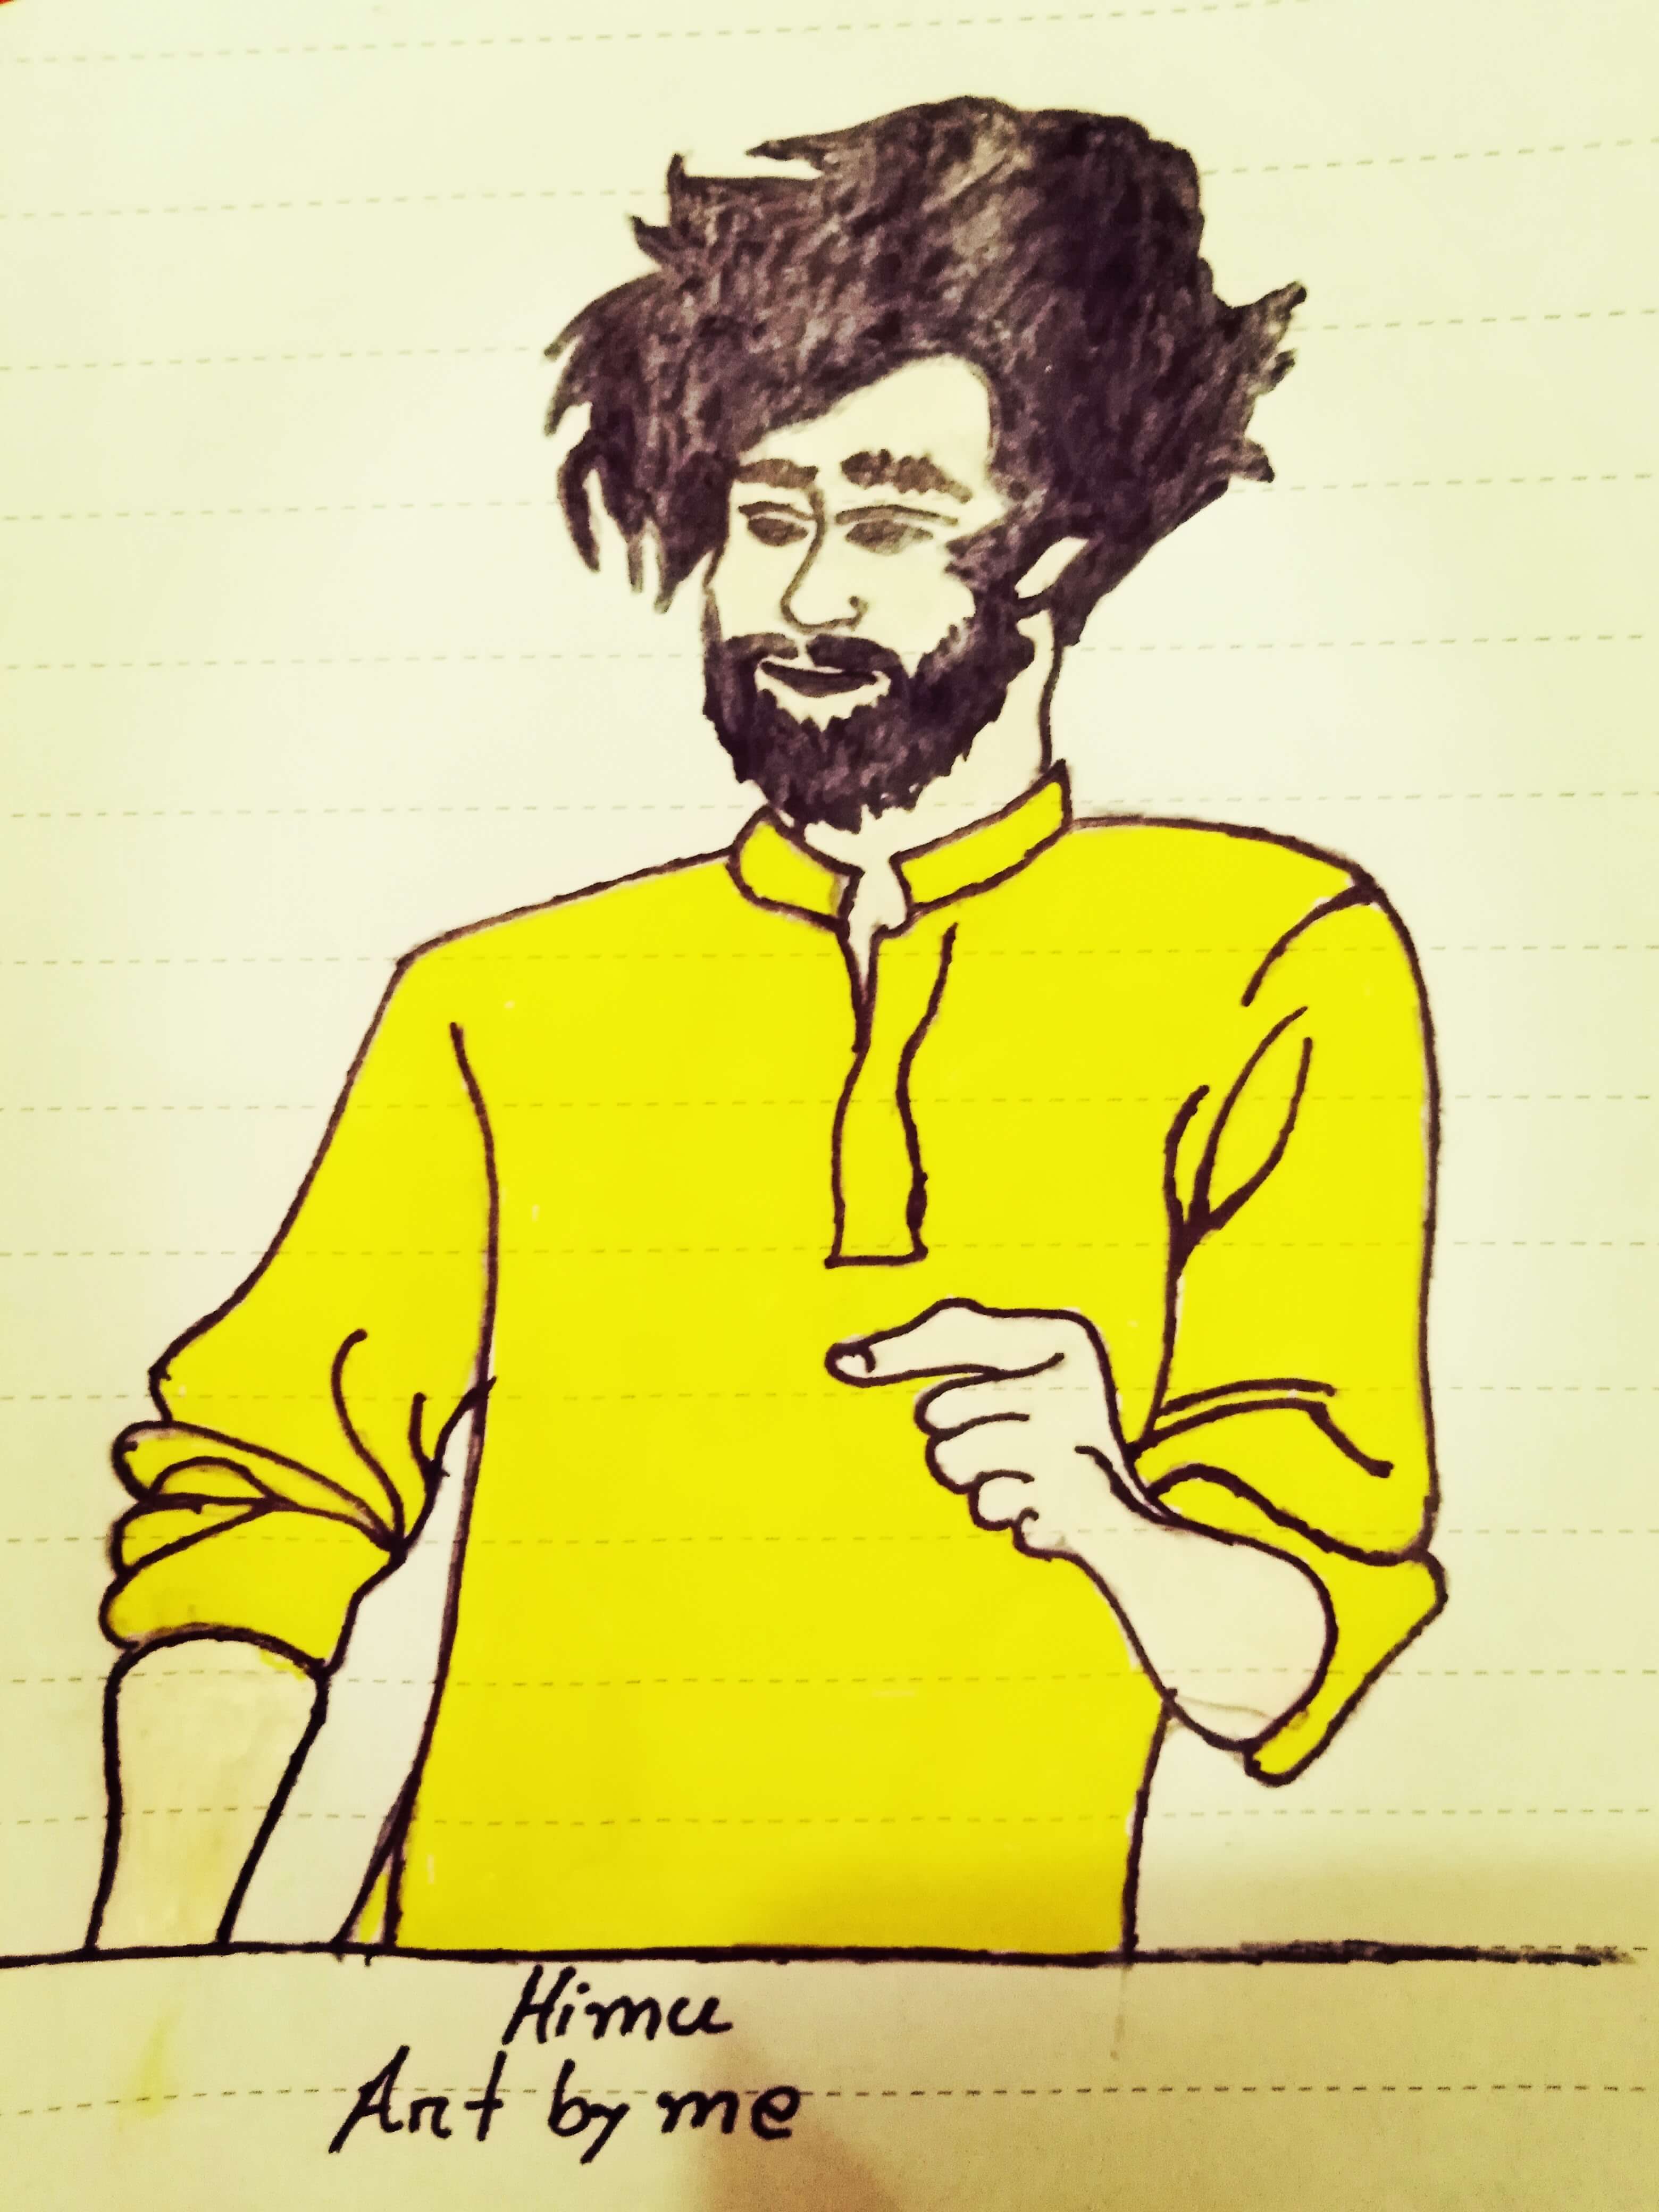 Himu
Art by me